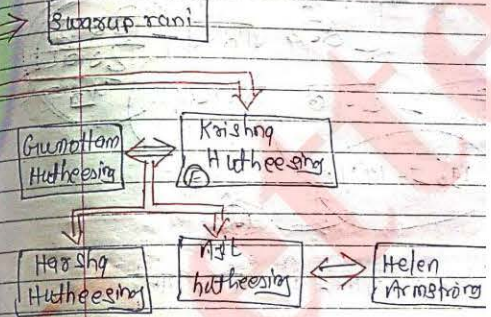 Swarup rani
Krishna
Hutheesing
E
Gunottam
Hutheesing
Harsha
Hutheesing
Ajit
hutheesing
Helen
Armstrong